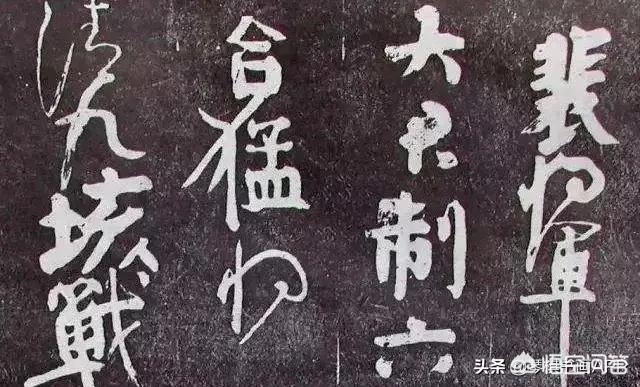 裴將軍
大君制六
合猛將
清九垓戰
悟空问答
头条